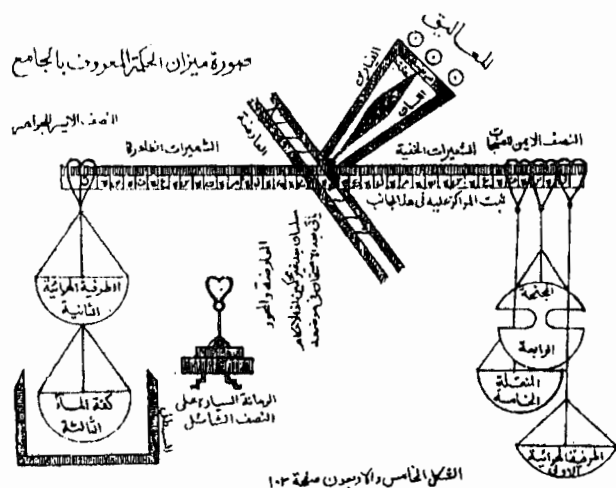 صورة ميزان الحكمة المعروف بالجامع
للمعاليق
الفيارين
اللسان
العارضة
النصف الايسر للجواهر
الشعيرات الظاهرة
الشعيرات الخفية
النصف الايمن للصنجات
تثبت المراكز عليه فى هذا الجانب
العارضة والمحور
الطرفية الهوائية
الثانية
كفة الماء
الثالثة
الرمانة السيارة على
النصف الشائل
المجنحة
الرابعة
المنقلة
الخامسة
الطرفية الهوائية
الاولى
الشكل الخامس والاربعون صفحة ١٠٣